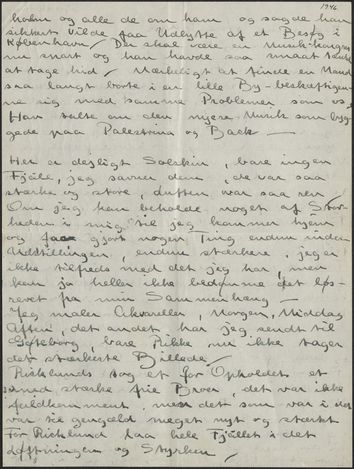 1946
holm og alle de om ham og sagde han
sikkert vilde faa Udbytte af et Besøg i
København. Der skal være en Musik-kongres
nu snart og han havde saa smaat tænkt
at tage hid. Mærkeligt at finde en Mand
saa langt borte i en lille By beskæftigen-
ne sig med samme Problemer som os,
Han talte om den nyere Musik som byg-
gede paa Palestrina og Bach —
Her er dejligt Solskin, bare ingen
Fjelle, jeg savner dem, de var saa
stærke og store, duften var saa ren
Om jeg kan beholde noget af Stor-
heden i mig til jeg kommer hjem
og faar gjort nogen Ting endnu inden
Udstillingen, endnu stærkere, jeg er
ikke tilfreds med det jeg har, men
kan jo heller ikke bedømme det løs-
revet fra min Sammenhæng —
Jeg maler Akvareller, Morgen, Middag
Aften, det andet har jeg sendt til
Gøteborg, bare Rikke nu ikke tager
det stærkeste Billede.
Ricklunds tog et for Opholdet et
med stærke frie Broer, det var ikke
fuldkomment, men det som var i det
var til gengæld meget nyt og stærkt
For Ricklund laa hele Fjället i det
løftningen og Styrken,